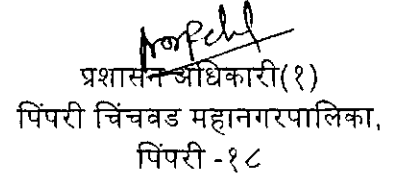 प्रशासन अधिकारी(१)
पिंपरी चिंचवड महानगरपालिका,
पिंपरी -१८